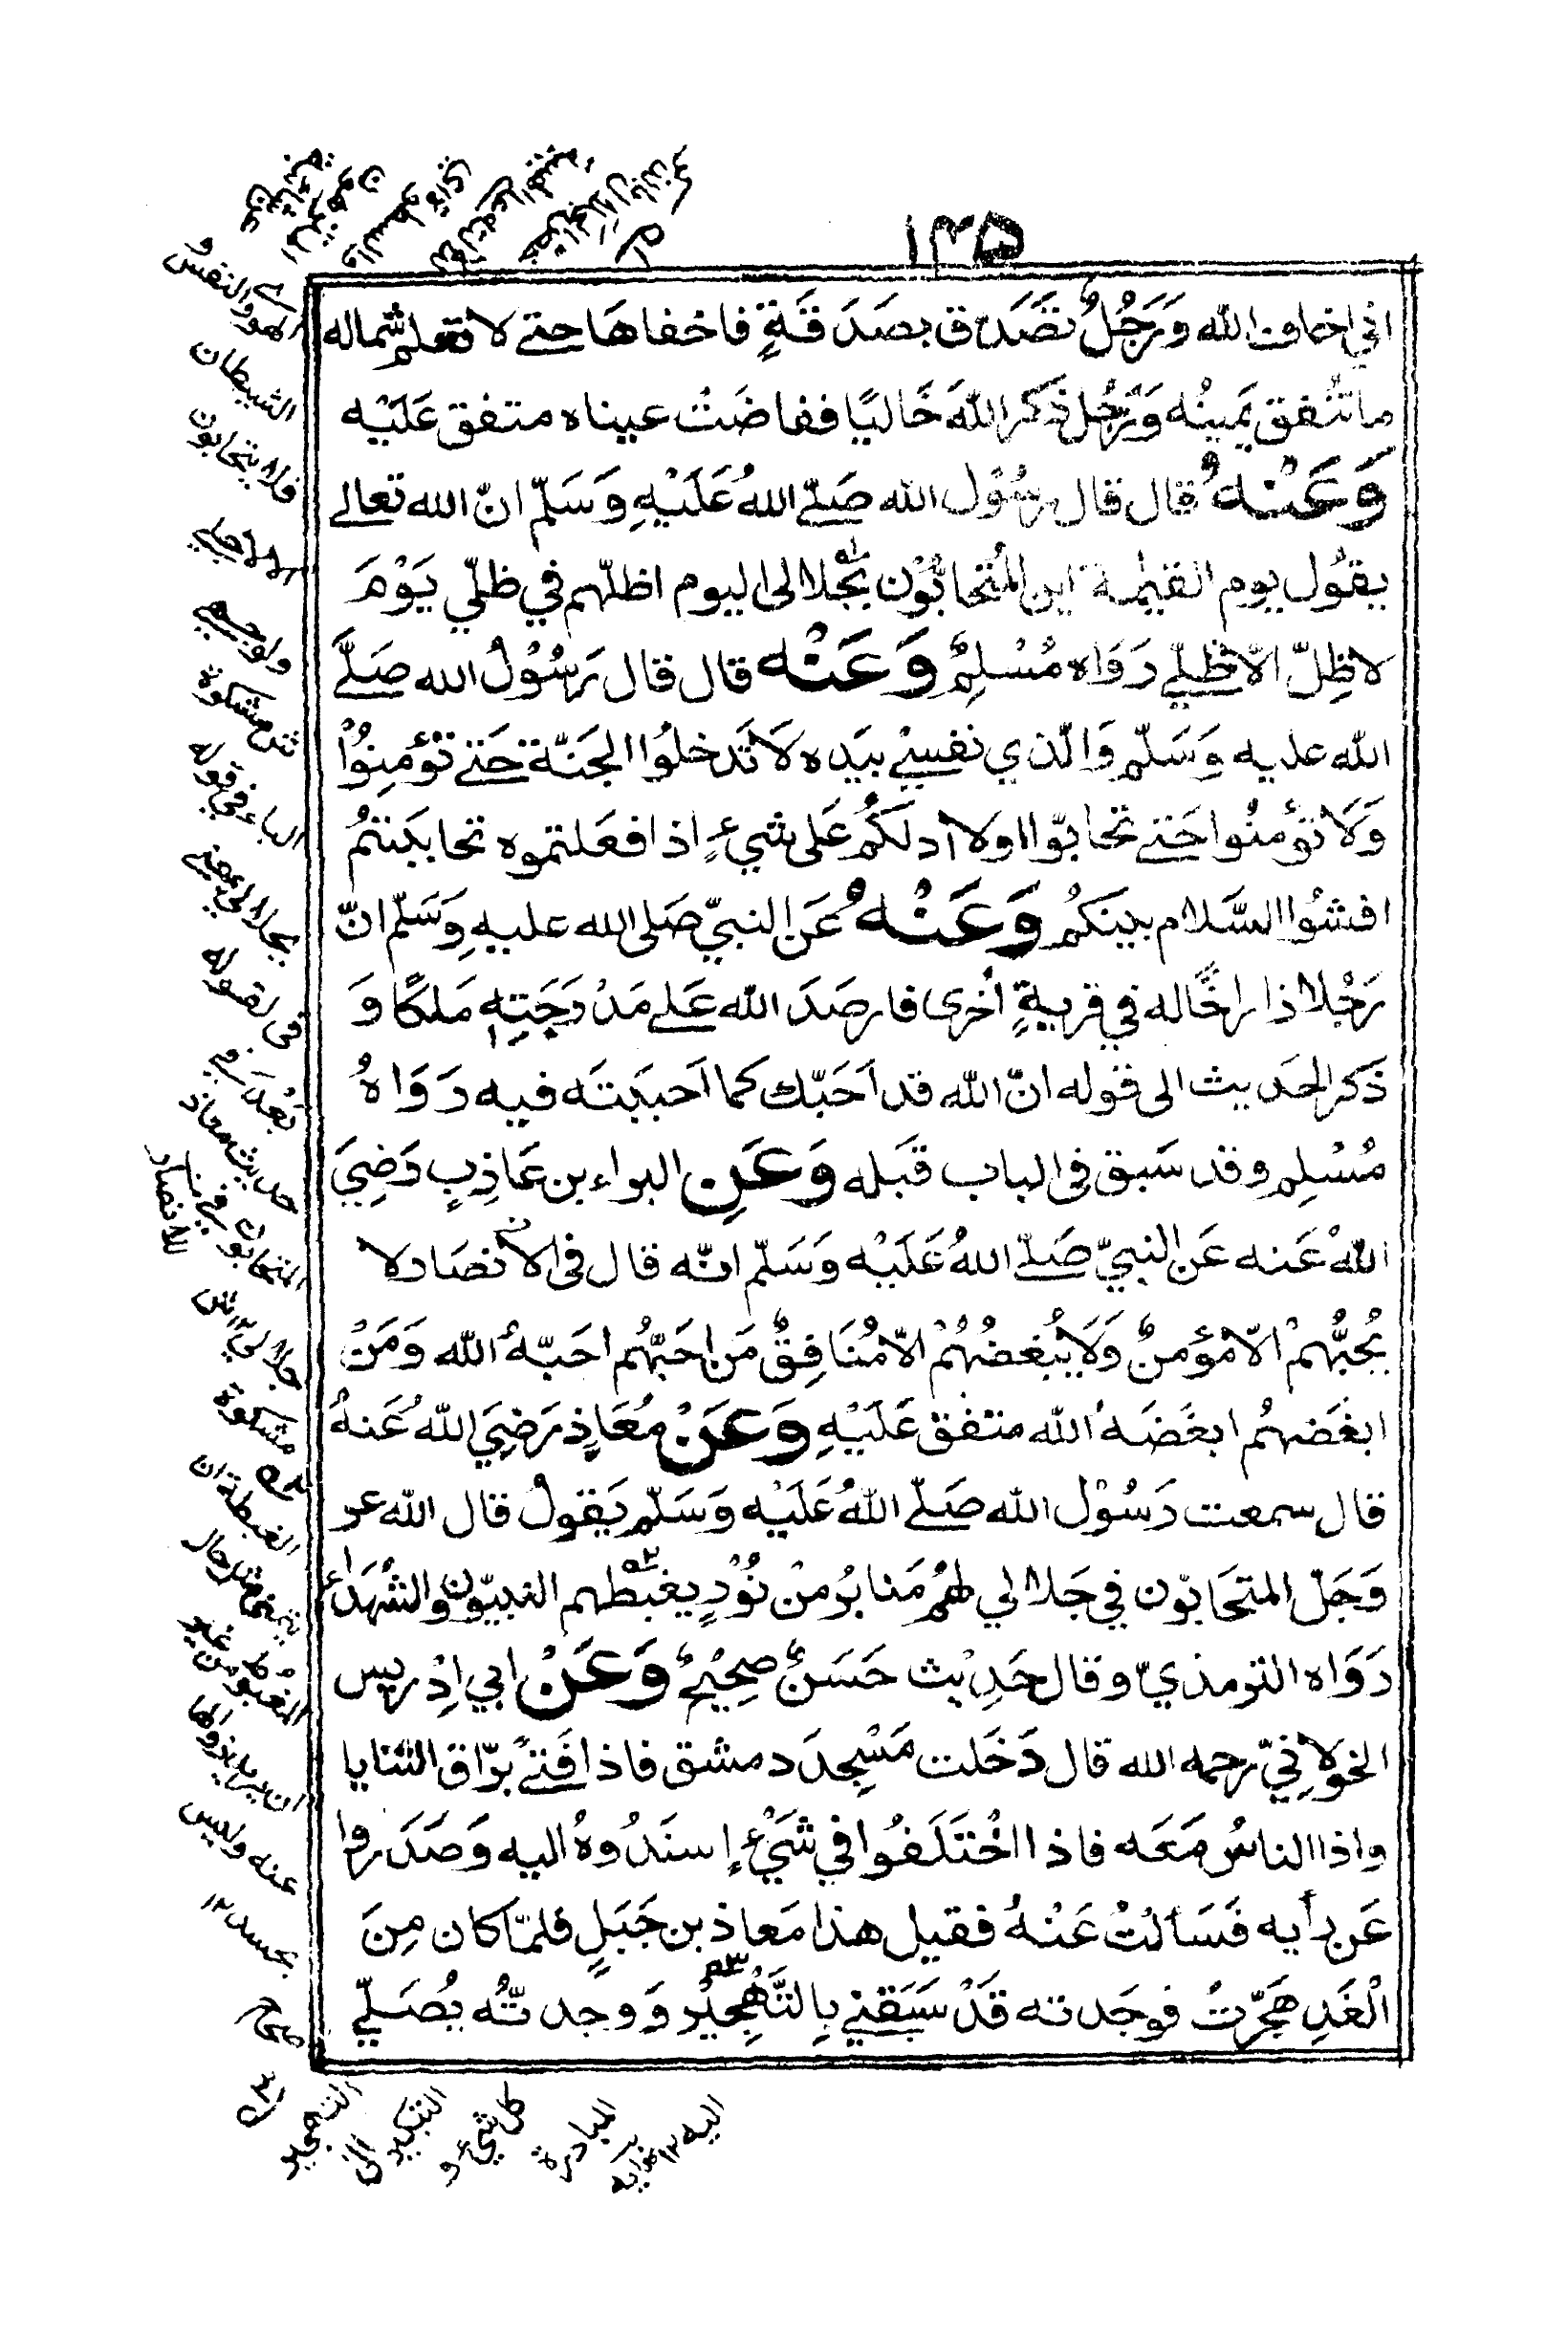 ١٣٥
اني اخاف الله وَرَجُلٌ تَصَدَّق بصَدَقَةٍ فاخفاهَا حتے لا تعلم شماله
ما تُنفق يَمينُه وَرَجُل ذكر اللهَ خَاليًا ففاضَتْ عيناه متفق عَلَيْه
وَعَنْهُ قال قال رسُوْل الله صَلّے اللهُ عَلَيْهِ وَسَلّم انّ الله تعالے
يقُول يوم القيٰمة اين المُتحابُّوْن بجلالى اليوم اظلّهم في ظلّي يَوْمَ
لا ظِلّ الّا ظلّے رَوَاه مُسْلِمٌ وَعَنْه قال قال رَسُوْلُ الله صَلَّے
الله عليه وَسَلّم وَالّذي نفسيْ بيَده لَا تَدخلُوا الجَنّة حَتے تؤمِنُوْا
وَلَا تؤمنُوا حَتے تحابّوا اولا ادلكُم عَلى شيءٍ اذا فعَلتموه تحابَبتمُ
افشُوا السَّلام بينكُم وَعَنْهُ عَن النبيّ صَلى الله عليهِ وَسَلّم انّ
رَجُلا زار اخًا له في قريةٍ أخرى فارصَدَ الله عَلے مَدْرَجَتِهٖ مَلكًا وَ
ذَكر الحَديث الى قوله انّ الله قد اَحَبّك كما اَحببتَه فيه رَوَاهُ
مُسْلِم وقد سَبق فِى الباب قَبله وَعَنِ البراء بن عَازِبٍ رَضِيَ
اللهُ عَنه عَن النبيّ صَلّے اللهُ عَلَيْه وَسَلّم انّه قال فى الانصَار لا
يُحبُّهمْ الّا مؤمنٌ وَلَا يُبغضُهُمْ الّا مُنَافِقٌ مَن احَبَّهُم احَبّهُ الله وَمَنْ
ابغَضهُم ابغَضَهُ الله متفق عَلَيْهِ وَعَنْ مُعَاذٍ رَضِيَ اللهُ عَنهُ
قال سمعت رَسُوْل الله صَلّے اللهُ عَلَيْه وَسَلّم يَقولُ قال الله عز
وَجَلّ المتحَابّون في جَلالي لهُم مَنابرُ مِنْ نُوْرٍ يغبطهم النبيّون والشُهَدَاءُ
رَوَاه الترمذيّ وقال حَدِيْث حَسَنٌ صحِيْحٌ وَعَنْ ابي اِدْرِيس
الخولانيّ رحمه الله قال دَخَلت مَسْجِدَ دمشق فاذا فَتےً برّاق الثنايا
واذا الناسُ مَعَه فاذا اخْتَلَفُوا في شَيْءٍ إسنَدُوهُ اليه وَصَدَرُوا
عَن رأيه فَسَألتُ عَنْهُ فقيل هذا مَعاذ بن جَبَلٍ فلمّا كان مِنَ
الْغَدِ هَجّرتُ فوجَدته قَدْ سَبَقني بِالتَّهْجِيْر وَوجدتُّه يُصَلّي
الهوى والنفس و
الشيطان
فلا يتحابون
الا لاجلي
ولوجهي
شرح مشكوة
الباء في قوله
بجلالي بمعنے
فى لقوله
بعد في
حديث معاذ
المتحابون في
جلالي ١٢
مشكوة
الغبطة ان
يتمنى مثل حال
المغبوط من غير
ان يريد زوالها
عنه وليس
بحسد ١٢
صراح
التهجير
التبكير الى
كل شيء و
المبادرة
اليه ١٢ نهايه